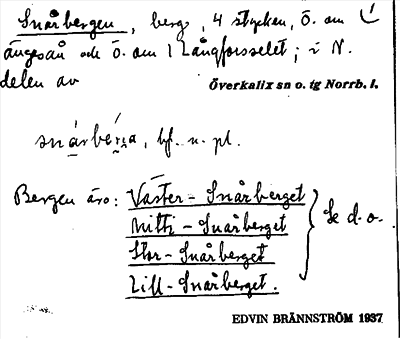 Snårbergen, berg, 4 stycken, Ö. om
ängesån och Ö. om Långforsselet; i N.
delen av
Överkalix sn o. tg Norrb. l.
snárbérga, bf. n. pl.
Bergen äro: Väster-Snårberget
Mitti-Snårberget
Stor-Snårberget
Lill-Snårberget.
Se d.o.
EDVIN BRÄNNSTRÖM 1937